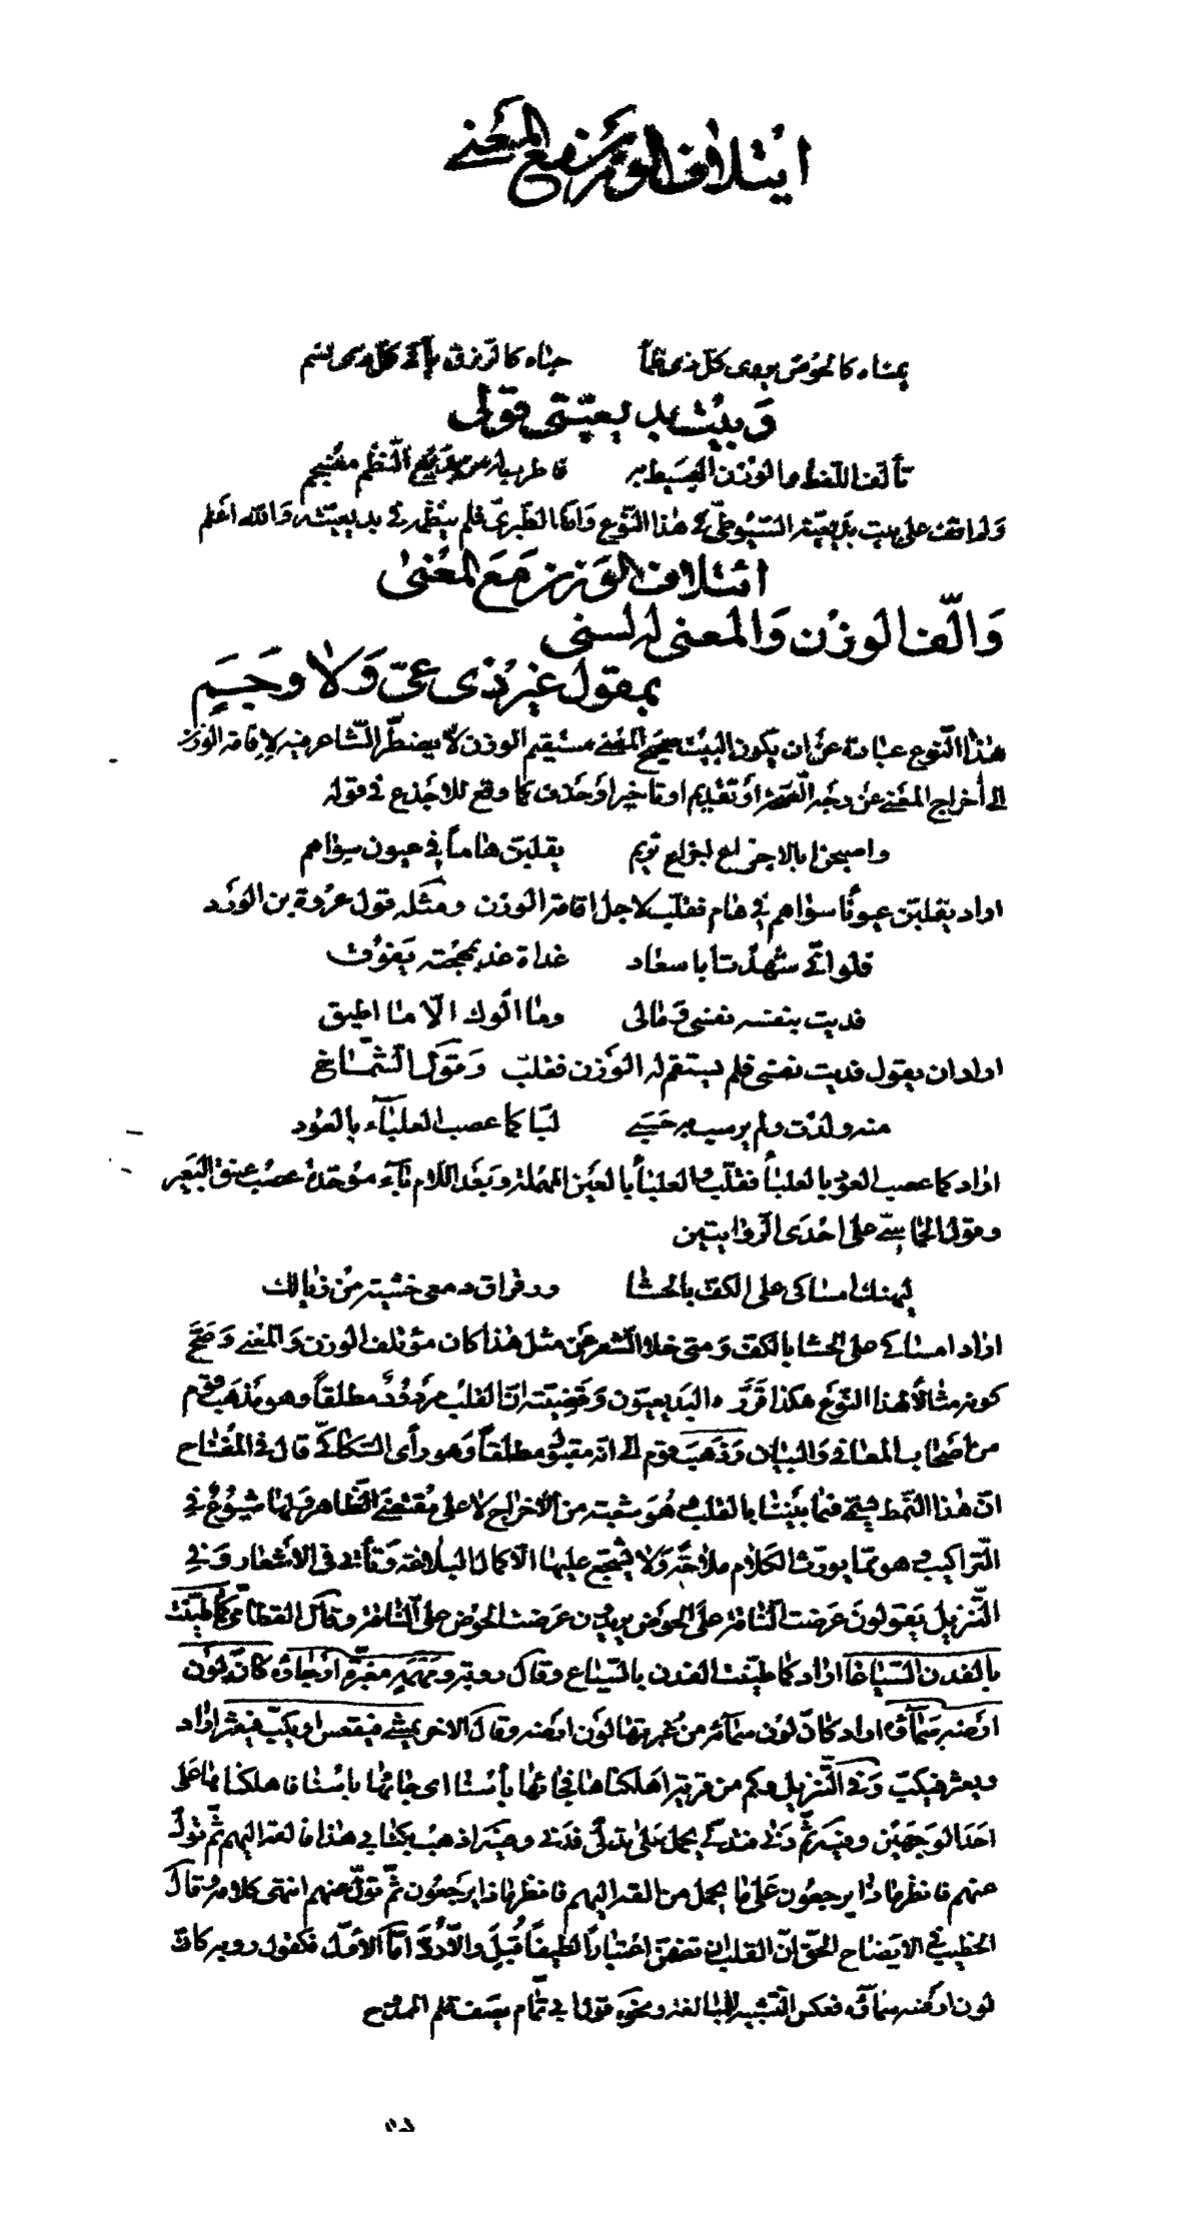 ائتلاف الوزن مع المعنى
يمناه كالحوض يروى كل ذي ظمأ حباه كالرزق يأتي كل ذي نسم
وبيت بديعيتي قولي
تألف اللفظ والوزن البسيط به فاطرب له من بديع النظم منسجم
ولم اقف على بيت بديعية السيوطي في هذا النوع واما الطبري فلم ينظمه في بديعيته والله اعلم
ائتلاف الوزن مع المعنى
والّف الوزن والمعنى له لسني
بمقول غير ذي عيّ ولا وجم
هذا النوع عبارة عن ان يكون البيت صحيح المعنى مستقيم الوزن لا يضطر الشاعر فيه لاقامة الوزن
الى اخراج المعنى عن وجه الصحة او تقديم او تاخير او حذف كما وقع للاجدع في قوله
واصبحن بالاجزاع اجزاع تريم يقلبن هاماً في عيون سواهم
اراد يقلبن عيونًا سواهم في هام فقلب لاجل اقامة الوزن ومثله قول عروة بن الورد
فلو اني شهدت ابا سعاد غداة غد بمهجته يفوق
فديت بنفسه نفسي ومالى وما الوك الّا ما اطيق
اراد ان يقول فديت نفسه بنفسي فلم يستقم له الوزن فقلب وقول الشماخ
منه ولدت ولم يوشب به حسبي لبّا كما عصب العلباء بالعود
اراد كما عصب العود بالعلباء فقلب والعلباء بالعين المهملة وبعد اللام باء موحدة عصب عنق البعير
وقول الحماسي على احدى الروايتين
ليهنك امساكى على الكف بالحشا ورقراق دمعى خشية من زيالك
اراد امساكي على الحشا بالكف ومتى خلا الشعر عن مثل هذا كان مؤتلف الوزن والمعنى وصح
كونه مثالاً لهذا النوع هكذا قرره البديعيون وقضيته ان القلب مردود مطلقاً وهو مذهب قوم
من اصحاب المعاني والبيان وذهب قوم الى انه مقبول مطلقاً وهو رأى السكاكي قال في المفتاح
ان هذا النمط يسمى فيما بيننا بالقلب وهو شعبة من الاخراج لا على مقتضى الظاهر ولها شيوع في
التراكيب وهو مما يورث الكلام ملاحة ولا يشجع عليها الا كمال البلاغة وتأتي في الاشعار وفي
التنزيل يقولون عرضت الناقة على الحوض يريدون عرضت الحوض على الناقة وقال القطامي كما طينت
بالفدن السياعا اراد كما طينت الفدن بالسياع وقال روبة ومهمه مغبرة ارجاؤه كانّ لون
ارضه سماؤه اراد كانّ لون سمائه من غبرتها لون ارضه وقال الاخر يمشي فيقعس او يكب فيعثر اراد
ويعثر فيكب وفي التنزيل وكم من قرية اهلكناها فجاءها بأسنا اى جاءها باسنا فاهلكناها على
احد الوجهين وفيه ثم دنى فتدلى يحمل على تدلى فدنى وفيه اذهب بكتابي هذا فالقه اليهم ثم تولّ
عنهم فانظر ماذا يرجعون على ما يحمل من القه اليهم فانظر ماذا يرجعون ثم تولّ عنهم انتهى كلامه وقال
الخطيب في الايضاح الحق انّ القلب ان تضمن اعتباراً لطيفاً قُبِل والّا رُدّ امّا الاول فكقول روبه كانّ
لون ارضه سماؤه فعكس التشبيه للمبالغة ونحوه قول ابي تمام يصف قلم الممدوح